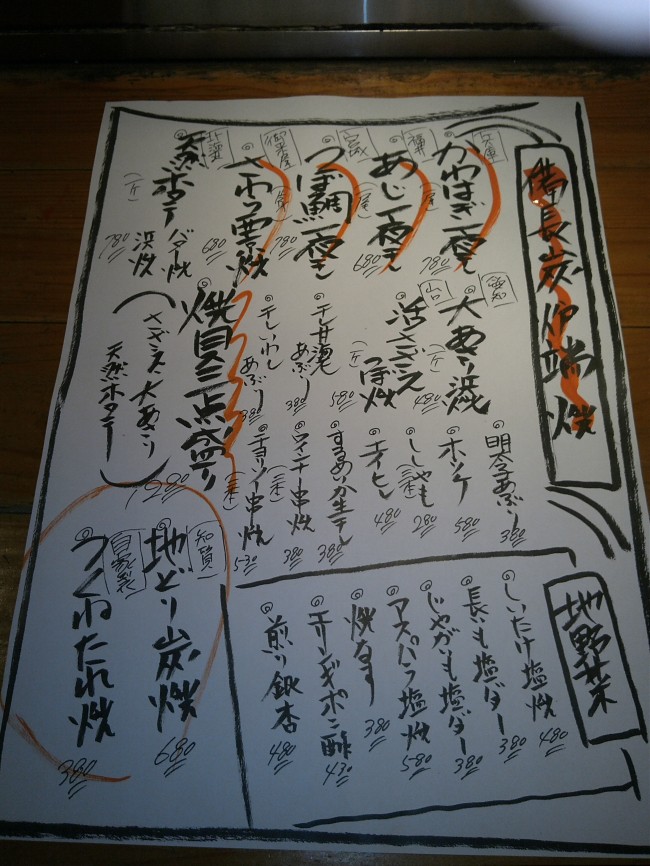 備長炭炉端焼
兵庫
かわはぎ一夜干し
780
福井
あじ一夜干し
680
宮城
つぼ鯛一夜干し
780
御米屋
さわら雫焼
680
北海道
天然ホタテ
バター焼
浜焼
780
愛知
大あさり浜焼
480
山口
活さざえつぼ焼
580
干し甘海老あぶり
380
干しいわしあぶり
380
焼貝三点盛り
さざえ 大あさり
天然ホタテ
1280
明太子あぶり
380
ホッケ
580
ししゃも
280
エイヒレ
480
するめいか生干し
380
ウインナー串焼
380
チョリソー串焼
530
地野菜
しいたけ塩焼
480
長いも塩バター
380
じゃがいも塩バター
380
アスパラ塩焼
580
焼なす
380
エリンギポン酢
430
煎り銀杏
480
地どり炭焼
680
自家製
つくねたれ焼
380